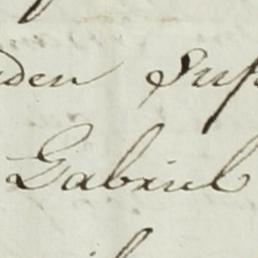 den Sup
Gabriel